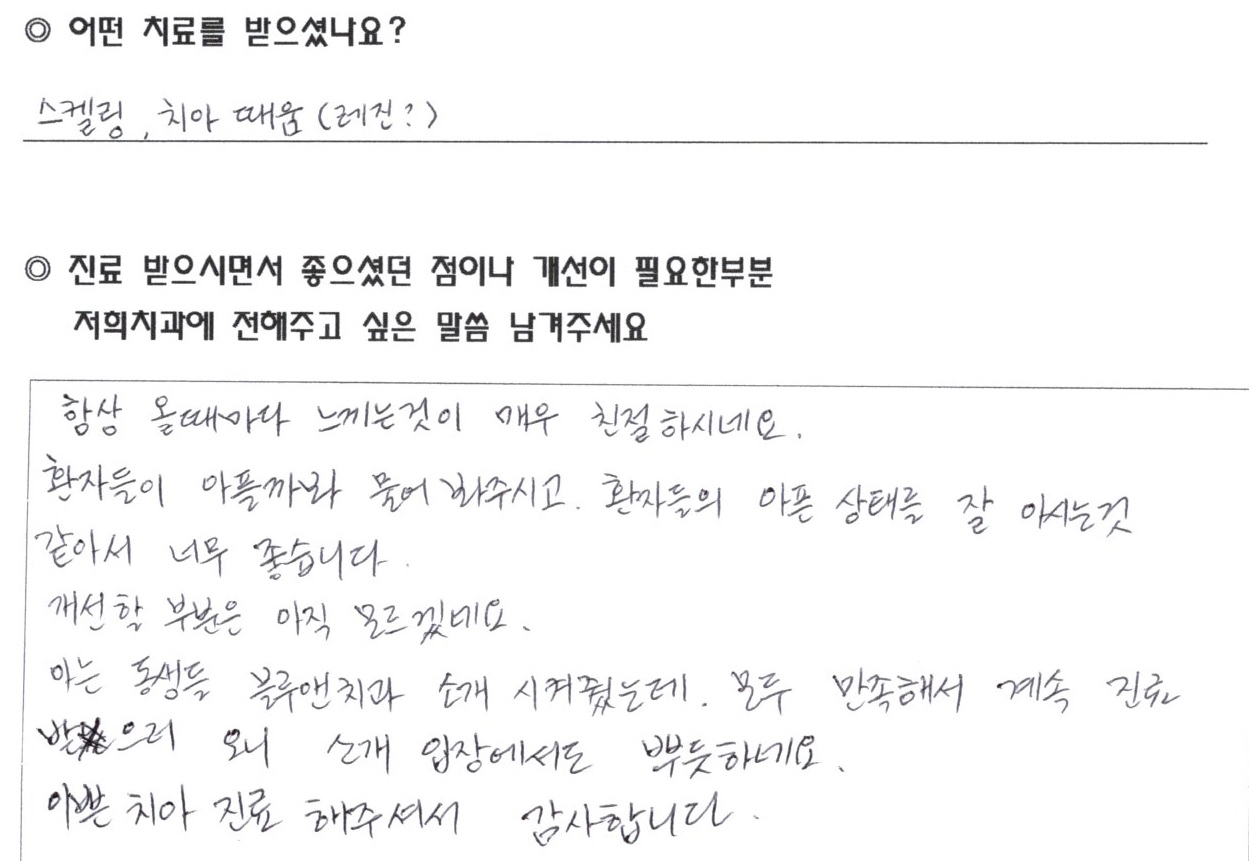 ◎ 어떤 치료를 받으셨나요?
스켈링, 치아 때움 (레진?)
◎ 진료 받으시면서 좋으셨던 점이나 개선이 필요한부분
저희치과에 전해주고 싶은 말씀 남겨주세요
항상 올때마다 느끼는것이 매우 친절하시네요.
환자들이 아플까봐 물어봐주시고. 환자들의 아픈 상태를 잘 아시는것
같아서 너무 좋습니다.
개선할 부분은 아직 모르겠네요.
아는 동생들 블루앤치과 소개 시켜줬는데. 모두 만족해서 계속 진료
받으러 오니 소개 입장에서도 뿌듯하네요.
아쁜 치아 진료 해주셔서 감사합니다.